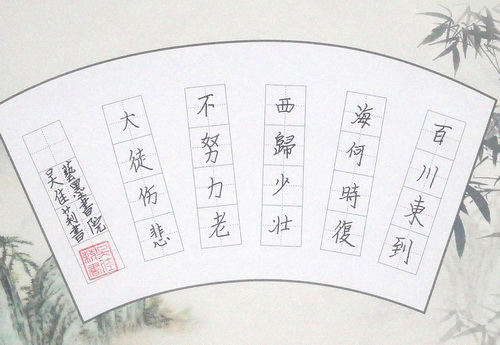 百川東到
海何時復
西歸少壮
不努力老
大徒伤悲
藝墨書院
吴佳莉書